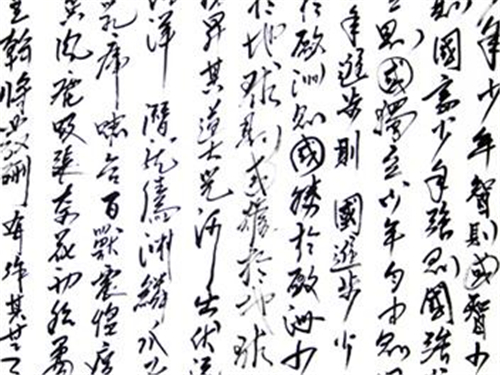 年少年智則國智少
則國富少年強則國強
則國獨立少年自由則國
年進步則國進步少
於歐洲則國勝於歐洲少
於地球則國雄於地球
昇其道大光河出伏流
洋潛龍騰淵鱗爪
乳虎嘯谷百獸震惶
風塵吸張奇花初胎矞
皇幹將發硎有作其芒